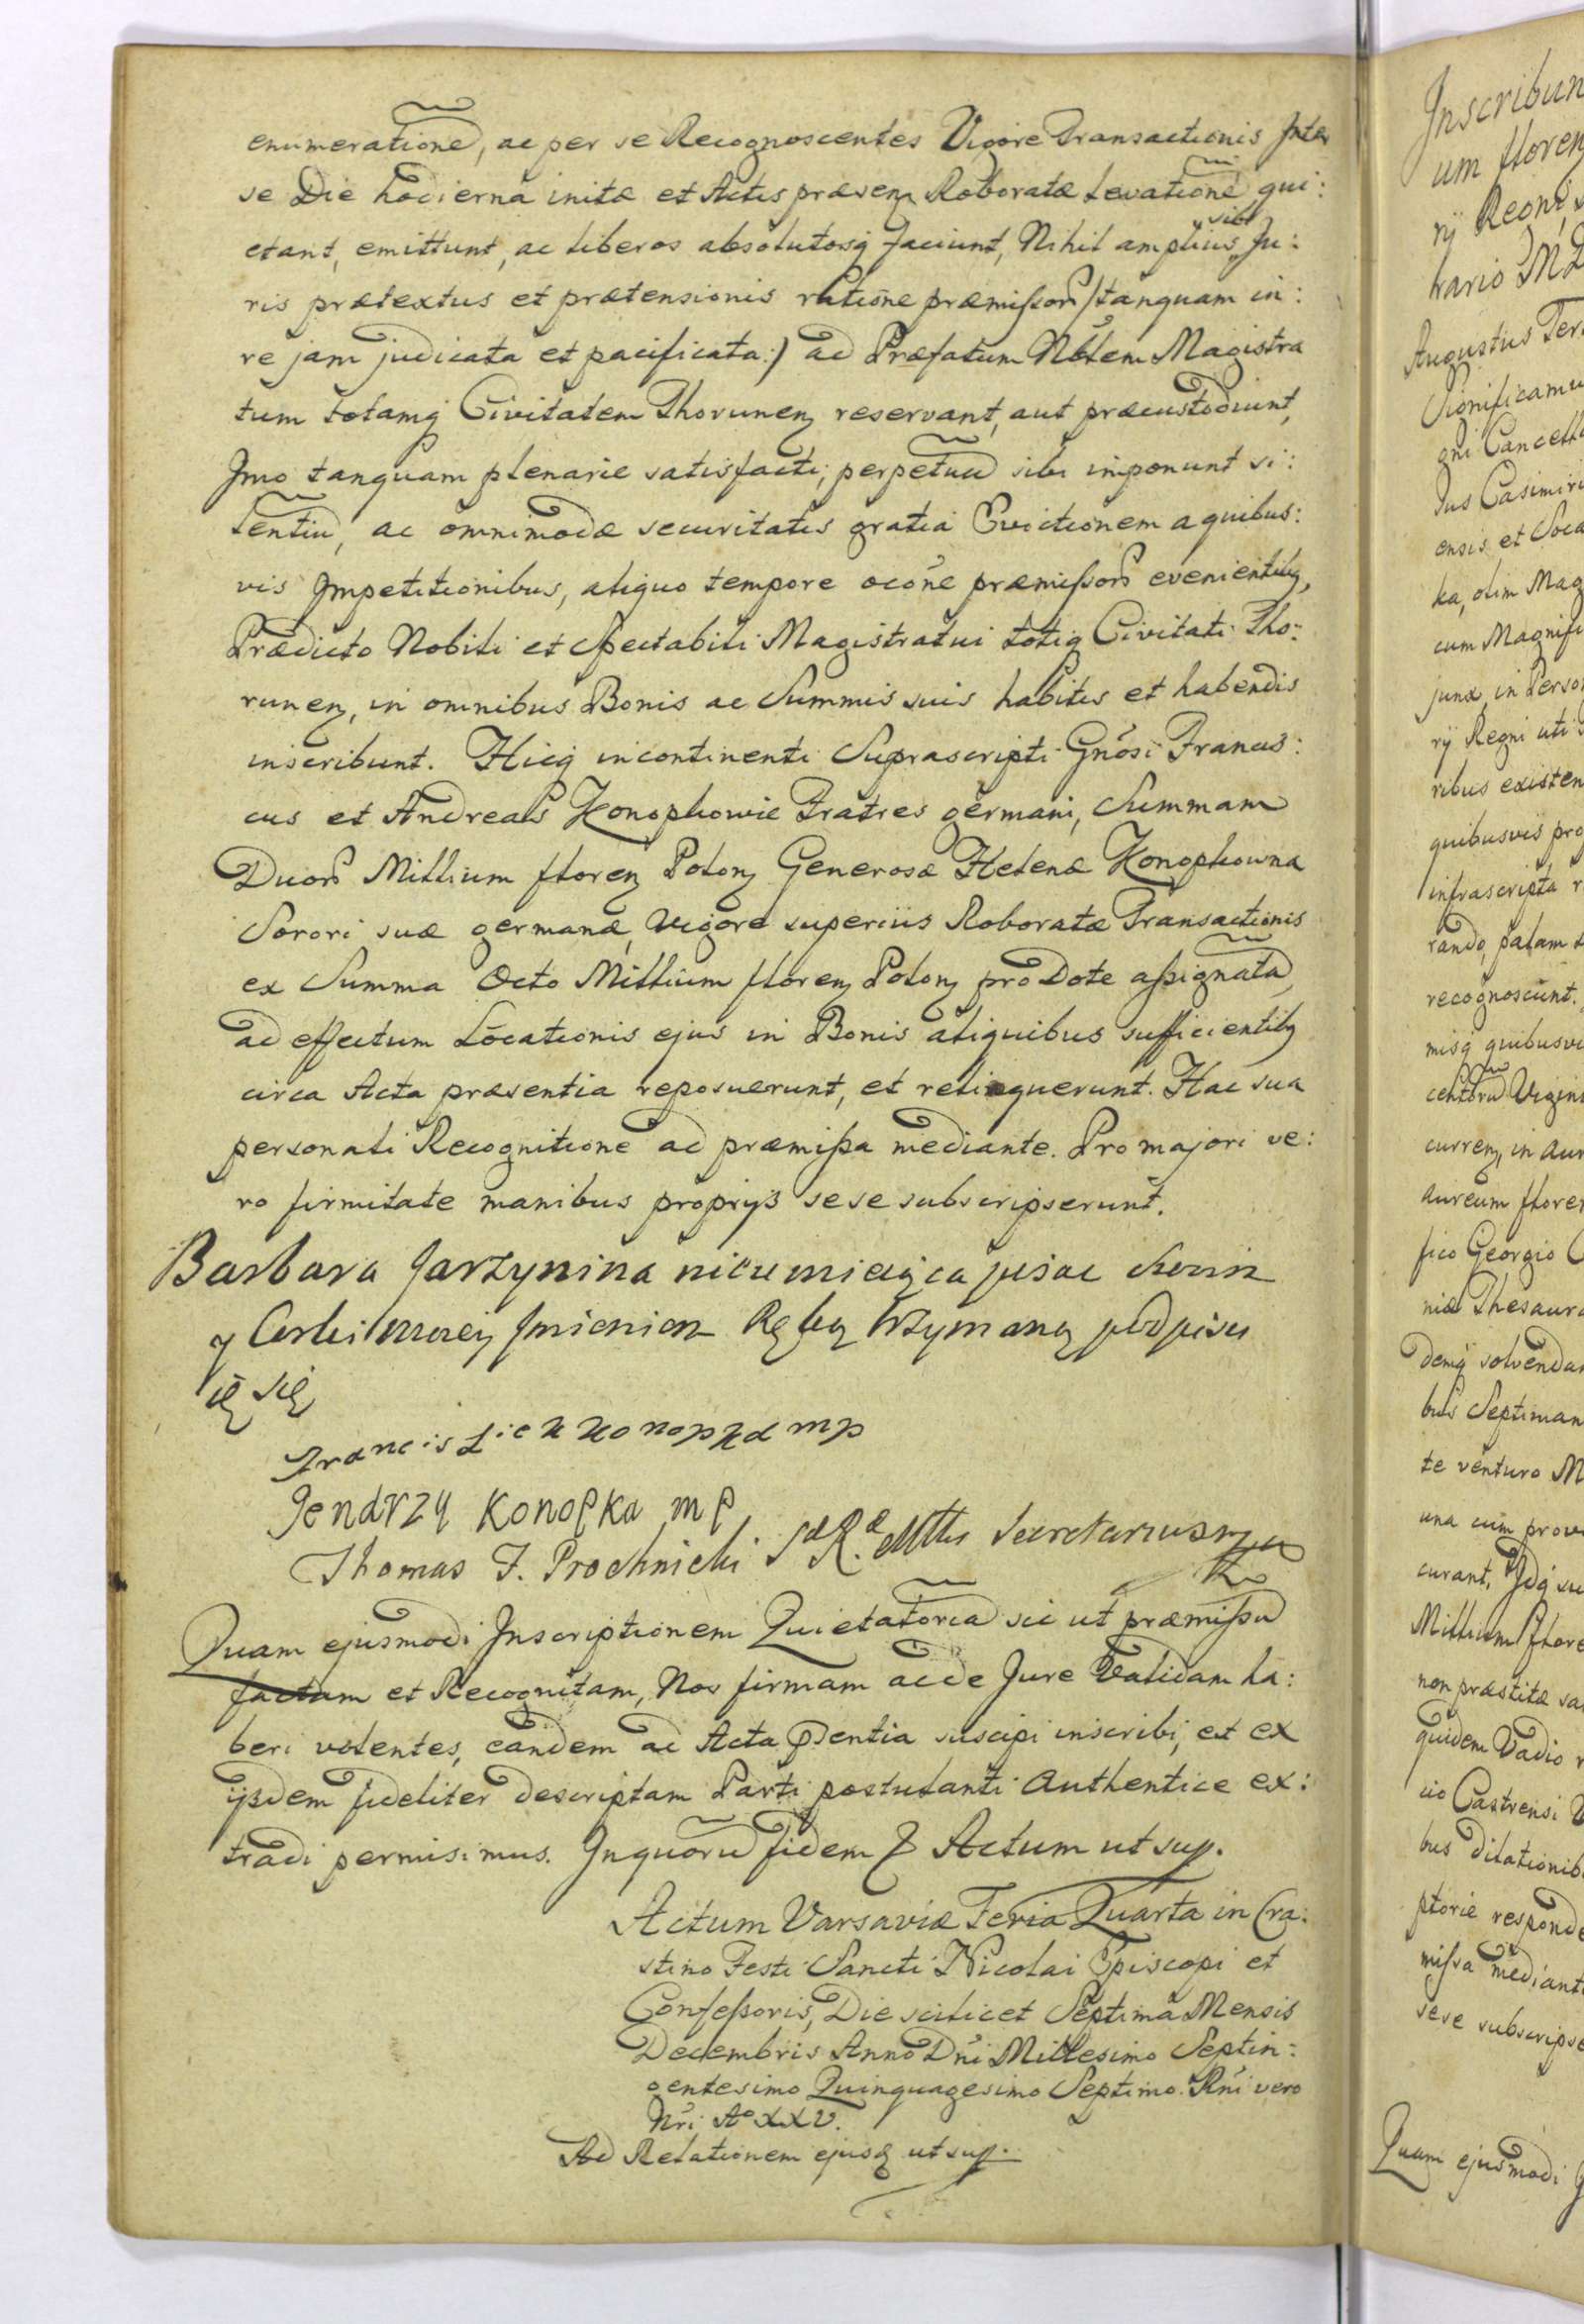 enumeratione, ac per se Recognoscentes Vigore Transactionis Inter
se Die hodierna initæ et Actis præsen Roboratæ Levatione qui:
etant, emittunt, ac liberos absolutosq faciunt, Nihil amplius sibi Ju:
ris prætextus et prætensionis ratione præmissor /tanquam in:
re jam judicata et pacificata:) ad Præfatum Nblem Magistra
tum totamq Civitatem Thorunen reservant, aut præcustodiunt,
Imo tanquam plenarie satisfacti, perpetuu sibi imponunt si:
lentiu, ac omnimodæ securitatis gratia Evictionem a quibus:
vis Impetitionibus, aliquo tempore ocōne præmissor evenientibq,
Prædicto Nobili et Spectabili Magistratui totiq Civitati Tho:
runen, in omnibus Bonis ac Summis suis habitis et habendis
inscribunt. Hicq incontinenti Suprascripti Gnōsi Francis:
cus et Andreas Konopkowie Fratres germani, Summam
Duor Millium floren Polon Generosæ Helenæ Konopkowna
Sorori suæ germanæ, Vigore superius Roboratæ Transactionis
ex Summa Octo Millium floren Polon pro Dote assignata,
ad effectum Locationis ejus in Bonis aliquibus sufficientibq
circa Acta præsentia reposuerunt, et relinquerunt. Hac sua
personali Recognitione ad præmissa mediante. Pro majori ve:
ro firmitate manibus proprys sese subscripserunt.
Barbara Jarzynina nieumieiąca pisac Swoim
y Corki moiey Imieniem Ręką trzymaną podpisu
ię się
Franciszek Konopka mp
Jendrzy Konopka mp
Thomas J. Prochnicki SæRæ Mttis Secretarius mp
Quam ejusmodi Inscriptionem Quietatoria sic ut præmissu
factam et Recognitam, Nos firmam ac de Jure Validam ha:
beri volentes, eandem ad Acta psentia suscipi inscribi, et ex
ijsdem fideliter descriptam Parti postulanti Authentice ex:
tradi permisimus. In quoru fidem & Actum ut sup.
Actum Varsaviæ Feria Quarta in Cra:
stino Festi Sancti Nicolai Episcopi et
Confessoris, Die scilicet Septima Mensis
Decembris Anno Dni Millesimo Septin:
gentesimo Quinquagesimo Septimo. Rni vero
Nri Aº XXV.
Ad Relationem ejusq ut sup.
Inscribun
um floren
ry Regni
brario
Augustus Ter
Significamu
gni Cancella
ius Casimiri
ensis et Soca
ka, olim Mag
cum Magnifi
junx in Person
ry Regni uti
ribus existen
quibusvis pro
infrascripta r
rando, palam
recognoscunt.
misq quibusvi
Vigint
curren, in aur
aureum flore
fico Georgio
niæ Thesaur
demq solvendar
bus Septiman
te venturo M
una cum prov
curant, Idq su
Millium flore
non præstitæ sa
quidem Vadio
cio Castrensi
bus dilationib
ptorie responde
missa mediant
sese subscripse
Quam ejusmodi